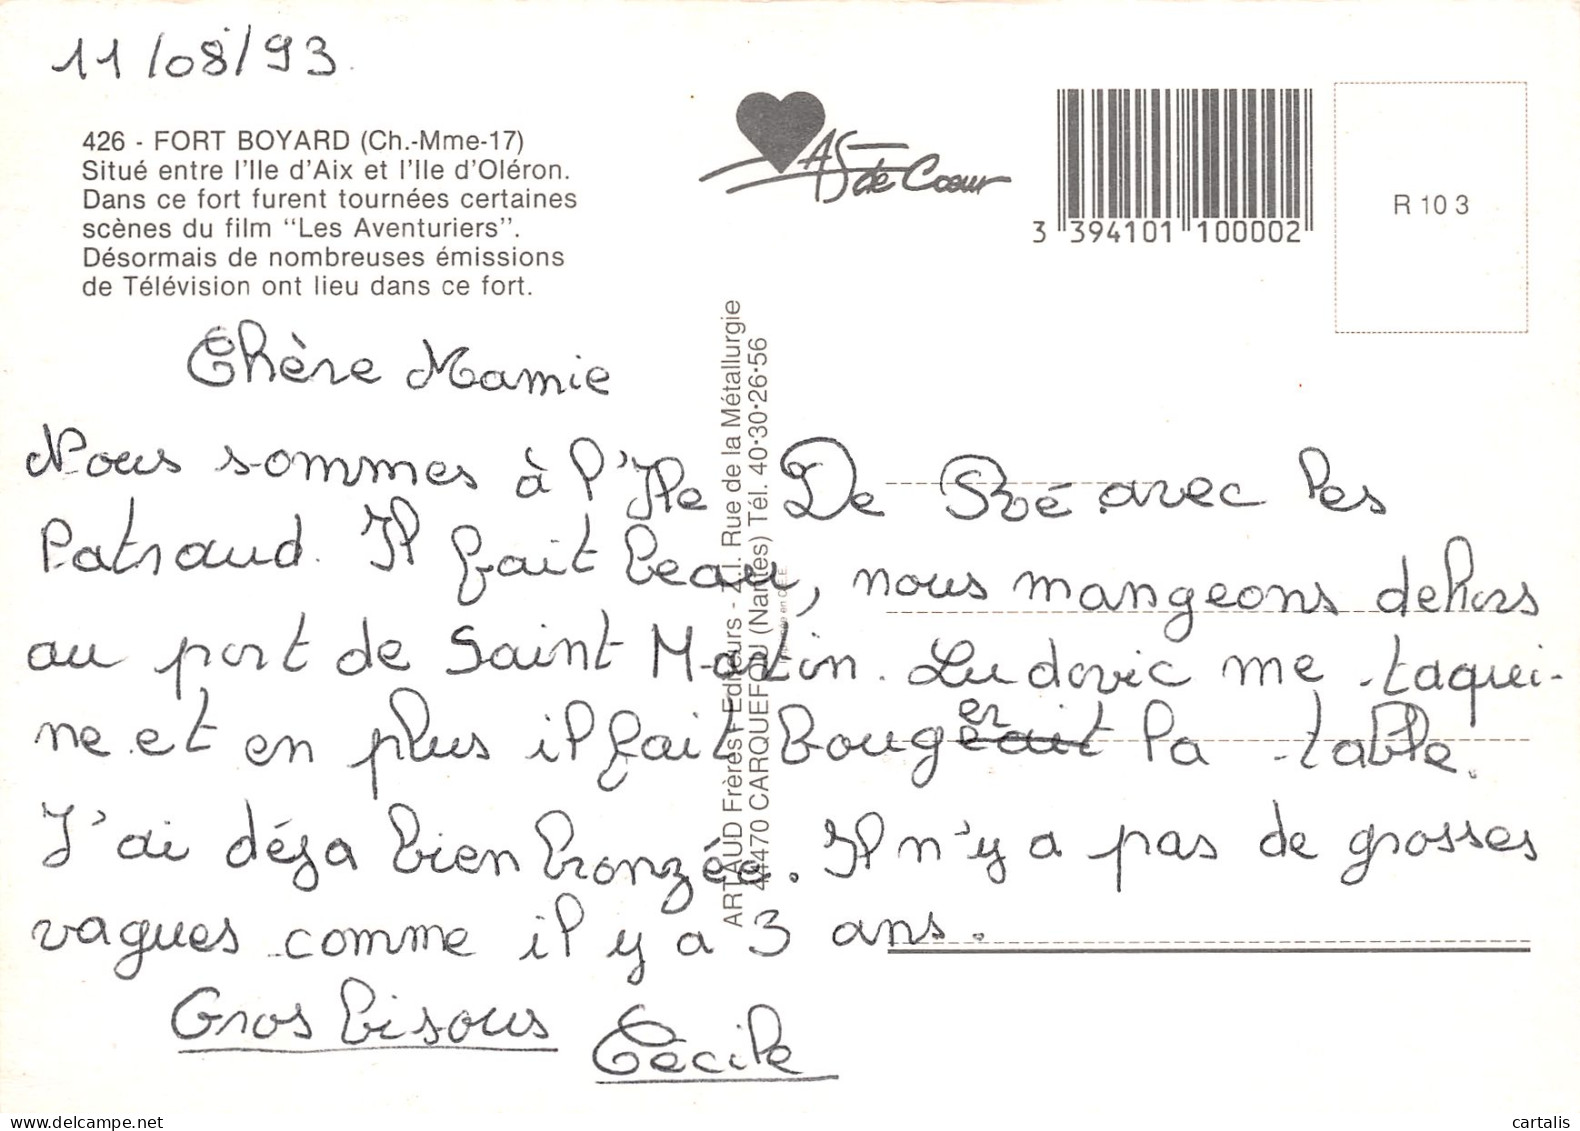 11/08/93
426 - FORT BOYARD (Ch.-Mme-17)
Situé entre l'Ile d'Aix et l'Ile d'Oléron.
Dans ce fort furent tournées certaines
scènes du film "Les Aventuriers".
Désormais de nombreuses émissions
de Télévision ont lieu dans ce fort.
AS de Cœur
3 394101 100002
R 10 3
ARTAUD Frères Editeurs - Z.I. Rue de la Métallurgie
44470 CARQUEFOU (Nantes) Tél. 40·30·26·56
Chère Mamie
Nous sommes à l'Ile De Ré avec les
Patraud. Il fait beau, nous mangeons dehors
au port de Saint Martin. Ludovic me taqui-
ne et en plus il fait bouger la table.
J'ai déja bien bronzée. Il n'y a pas de grosses
vagues comme il y a 3 ans.
Gros bisous Cécile
cartalis
www.delcampe.net